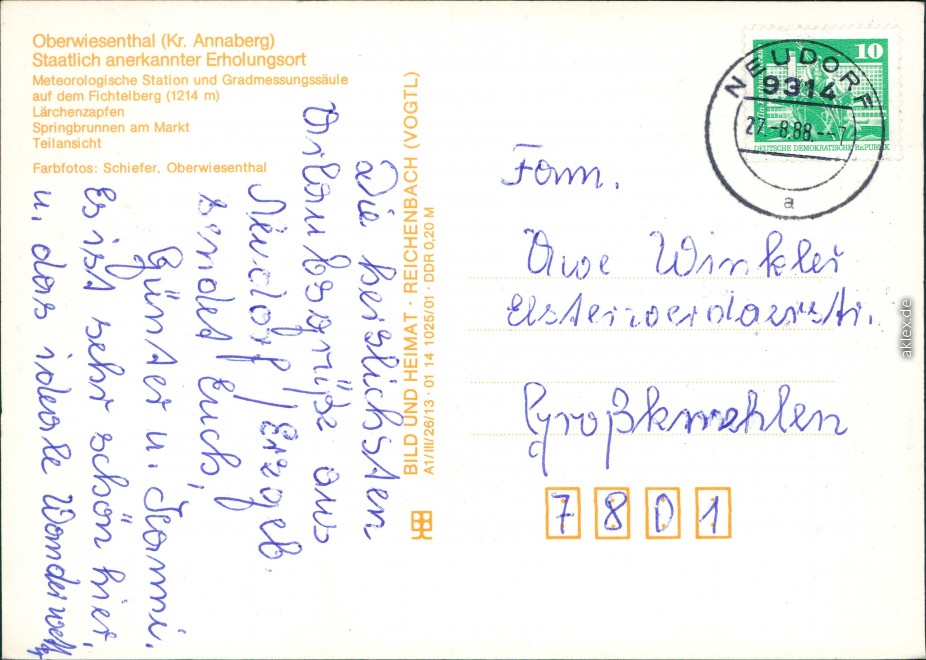 Oberwiesenthal (Kr. Annaberg)
Staatlich anerkannter Erholungsort
Meteorologische Station und Gradmessungssäule
auf dem Fichtelberg (1214 m)
Lärchenzapfen
Springbrunnen am Markt
Teilansicht
Farbfotos: Schiefer, Oberwiesenthal
Die herzlichsten
Urlaubsgrüße aus
Neudorf/Erzgeb.
sendet Euch,
Günter u. Hanni.
Es ist sehr schön hier,
u. das ideale Wanderwett
BILD UND HEIMAT · REICHENBACH (VOGTL)
A1/III/26/13 · 01 14 1025/01 · DDR 0,20 M
10
DEUTSCHE DEMOKRATISCHE REPUBLIK
NEUDORF
9314
27.-8.88.--7
a
Fam.
Uwe Winkler
Elsterwerdaerstr.
Großkmehlen
7801
aklex.de